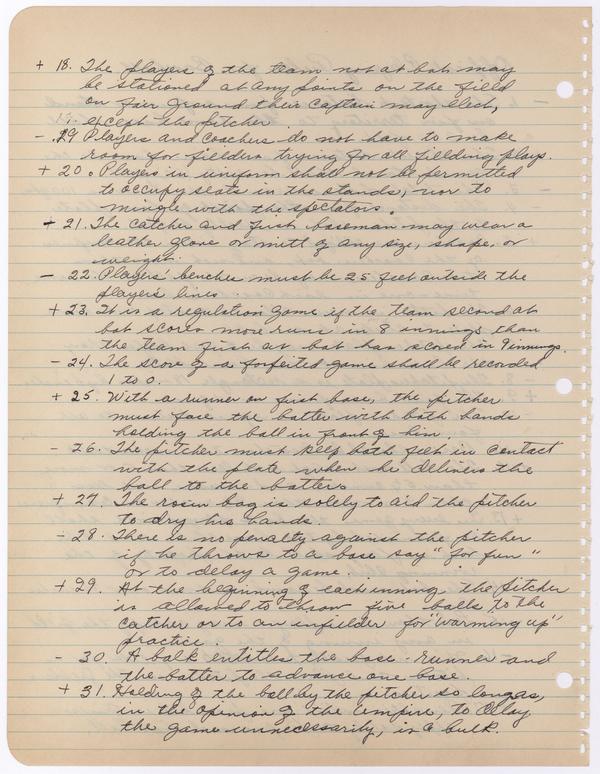 + 18. The players of the team not at bat may
be stationed at any points on the field
on fair ground their captain may elect,
19. except the pitcher
- 19 Players and coaches do not have to make
room for fielders trying for all fielding plays.
+ 20. Players in uniform shall not be permitted
to occupy seats in the stands, nor to
mingle with the spectators.
+ 21. The catcher and first baseman may wear a
leather glove or mitt of any size, shape, or
weight.
- 22. Players' benches must be 25 feet outside the
players lines.
+ 23. It is a regulation game if the team second at
bat scores more runs in 8 innings than
the team first at bat has scored in 9 innings.
- 24. The score of a forfeited game shall be recorded
1 to 0.
+ 25. With a runner on first base, the pitcher
must face the batter with both hands
holding the ball in front of him.
- 26. The pitcher must keep both feet in contact
with the plate when he delivers the
ball to the batters
+ 27. The rosin bag is solely to aid the pitcher
to dry his hands.
- 28. There is no penalty against the pitcher
if he throws to a base say "for fun"
or to delay a game.
+ 29. At the beginning of each inning the pitcher
is allowed to throw five balls to the
catcher or to an infielder for "warming up"
practice.
- 30. A balk entitles the base-runner and
the batter to advance one base.
+ 31. Holding of the ball by the pitcher so long as,
in the opinion of the umpire, to delay
the game unnecessarily, is a balk.